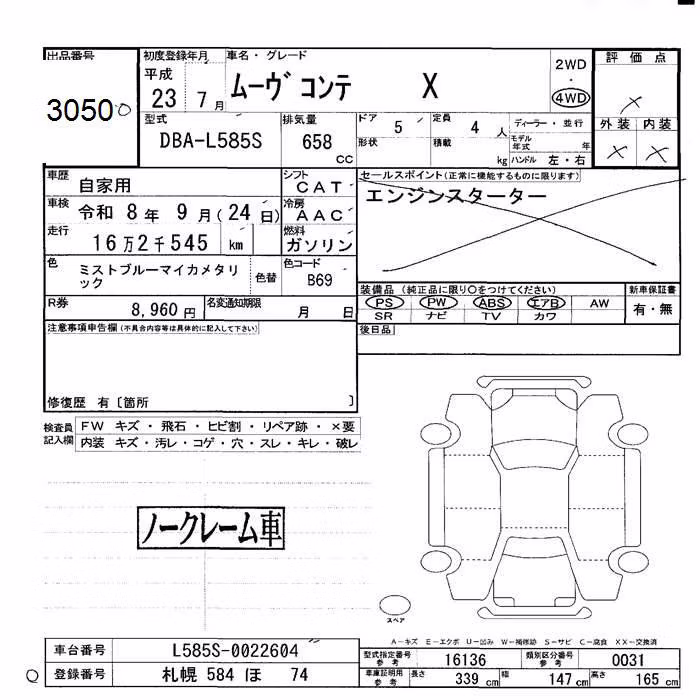 出品番号
3050
初度登録年月
平成
23 7 月
車名・グレード
ムーヴ コンテ X
2WD
・
4WD
評価点
×
外装 内装
× ×
型式
DBA-L585S
排気量
658
CC
ドア 5
形状
定員 4 人
積載 kg
ディーラー・並行
モデル年式 年
ハンドル 左・右
車歴
自家用
シフト
CAT
セールスポイント(正常に機能するものに限ります)
エンジンスターター
車検
令和 8 年 9 月(24 日)
冷房
AAC
走行
16 万 2 千 545 km
燃料
ガソリン
色
ミストブルーマイカメタリック
色替
色コード
B69
装備品 (純正品に限り○をつけてください)
PS PW ABS エアB AW
SR ナビ TV カワ
新車保証書
有・無
R券
8,960 円
名変通知期限
月 日
後日品
注意事項申告欄(不具合内容等は具体的に記入して下さい)
修復歴 有〔箇所 〕
検査員記入欄
FW キズ・飛石・ヒビ割・リペア跡・×要
内装 キズ・汚レ・コゲ・穴・スレ・キレ・破レ
ノークレーム車
スペア
A−キズ E−エクボ U−凹み W−補修跡 S−サビ C−腐食 XX−交換済
車台番号
L585S-0022604
登録番号
札幌 584 ほ 74
型式指定番号
参考
16136
類別区分番号
参考
0031
車庫証明用
参考
長さ 339 cm
幅 147 cm
高さ 165 cm